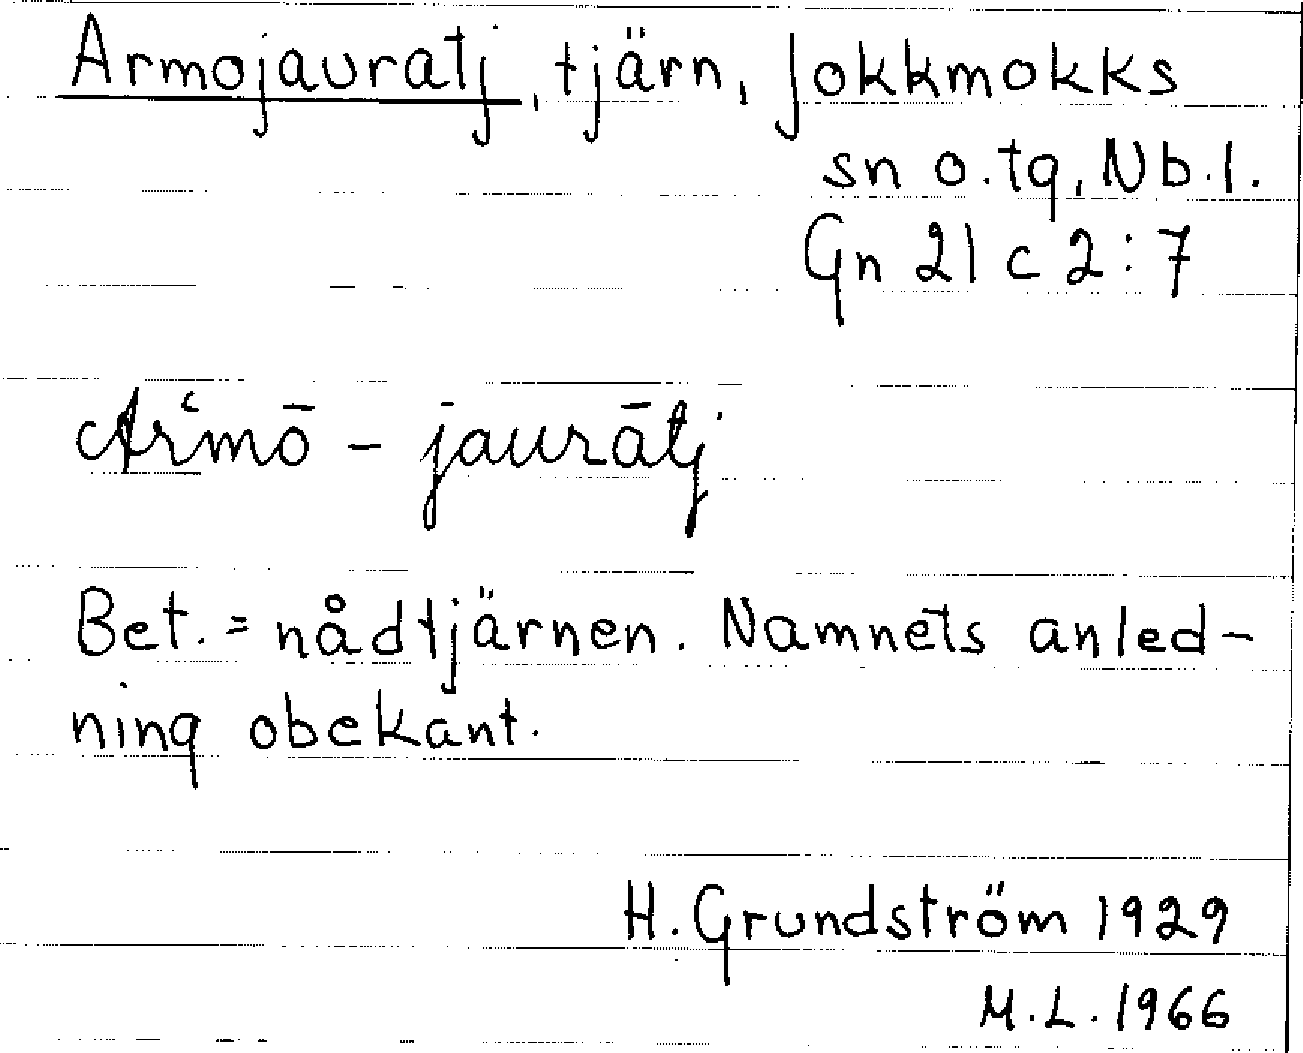 Armojauratj, tjärn, Jokkmokks
sn o. tg, Nb. l.
Gn 21 c 2:7
Arʿmō - jaurātj
Bet. = nådtjärnen. Namnets anled-
ning obekant.
H. Grundström 1929
M.L. 1966